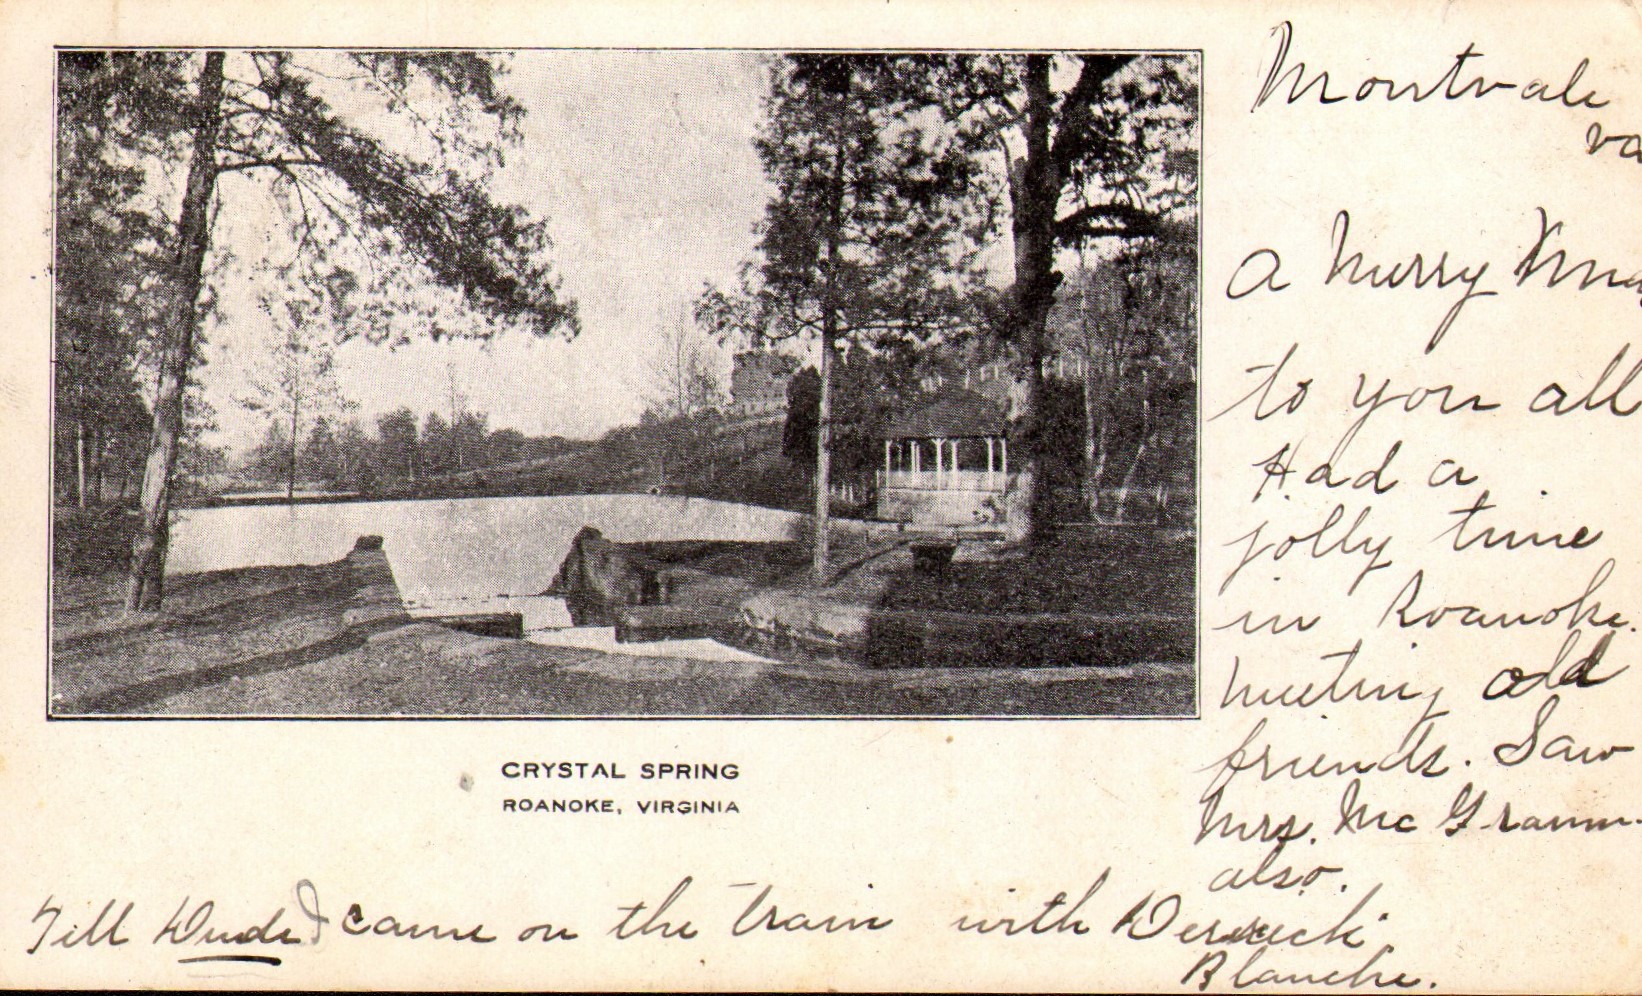 Montvale
Va
A Merry Xmas
to you all
Had a
jolly time
in Roanoke.
meeting old
friends. Saw
Mrs. Mc
also.
CRYSTAL SPRING
ROANOKE, VIRGINIA
Tell Dude I came on the train with
Blanche.